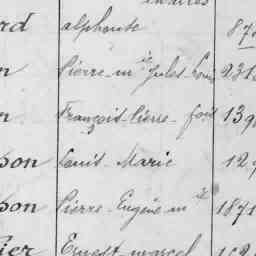 rd alphonse 87
n Pierre-mie Jules Louis 231
n François-Pierre-
son Louis Marie 12
son Pierre-Eugène mie 1871
ier Ernest marcel